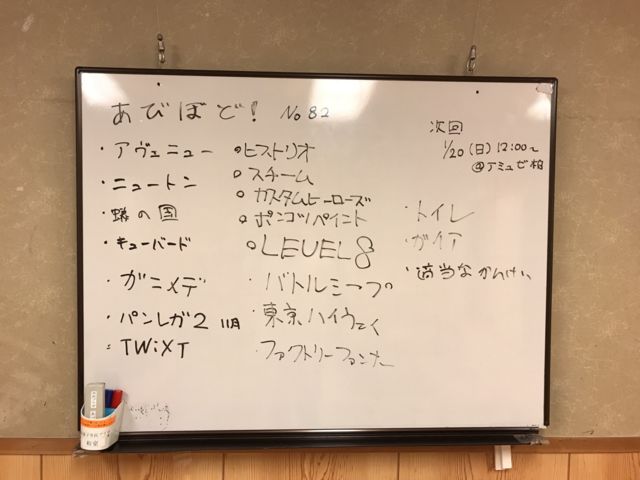 あびぼど! No 82
・アヴェニュー
・ニュートン
・蟻の国
・キューバード
・ガニメデ
・パンレガ2 11月
：TWiXT
○ヒストリオ
○スチーム
○カスタムヒーローズ
○ポンコツペイント
○LEVEL8
・バトルシープ
・東京ハイウェイ
・ファクトリーファンナー
次回
1/20(日)12:00~
@アミュゼ柏
・トイレ
・ガイア
・適当なかんけい